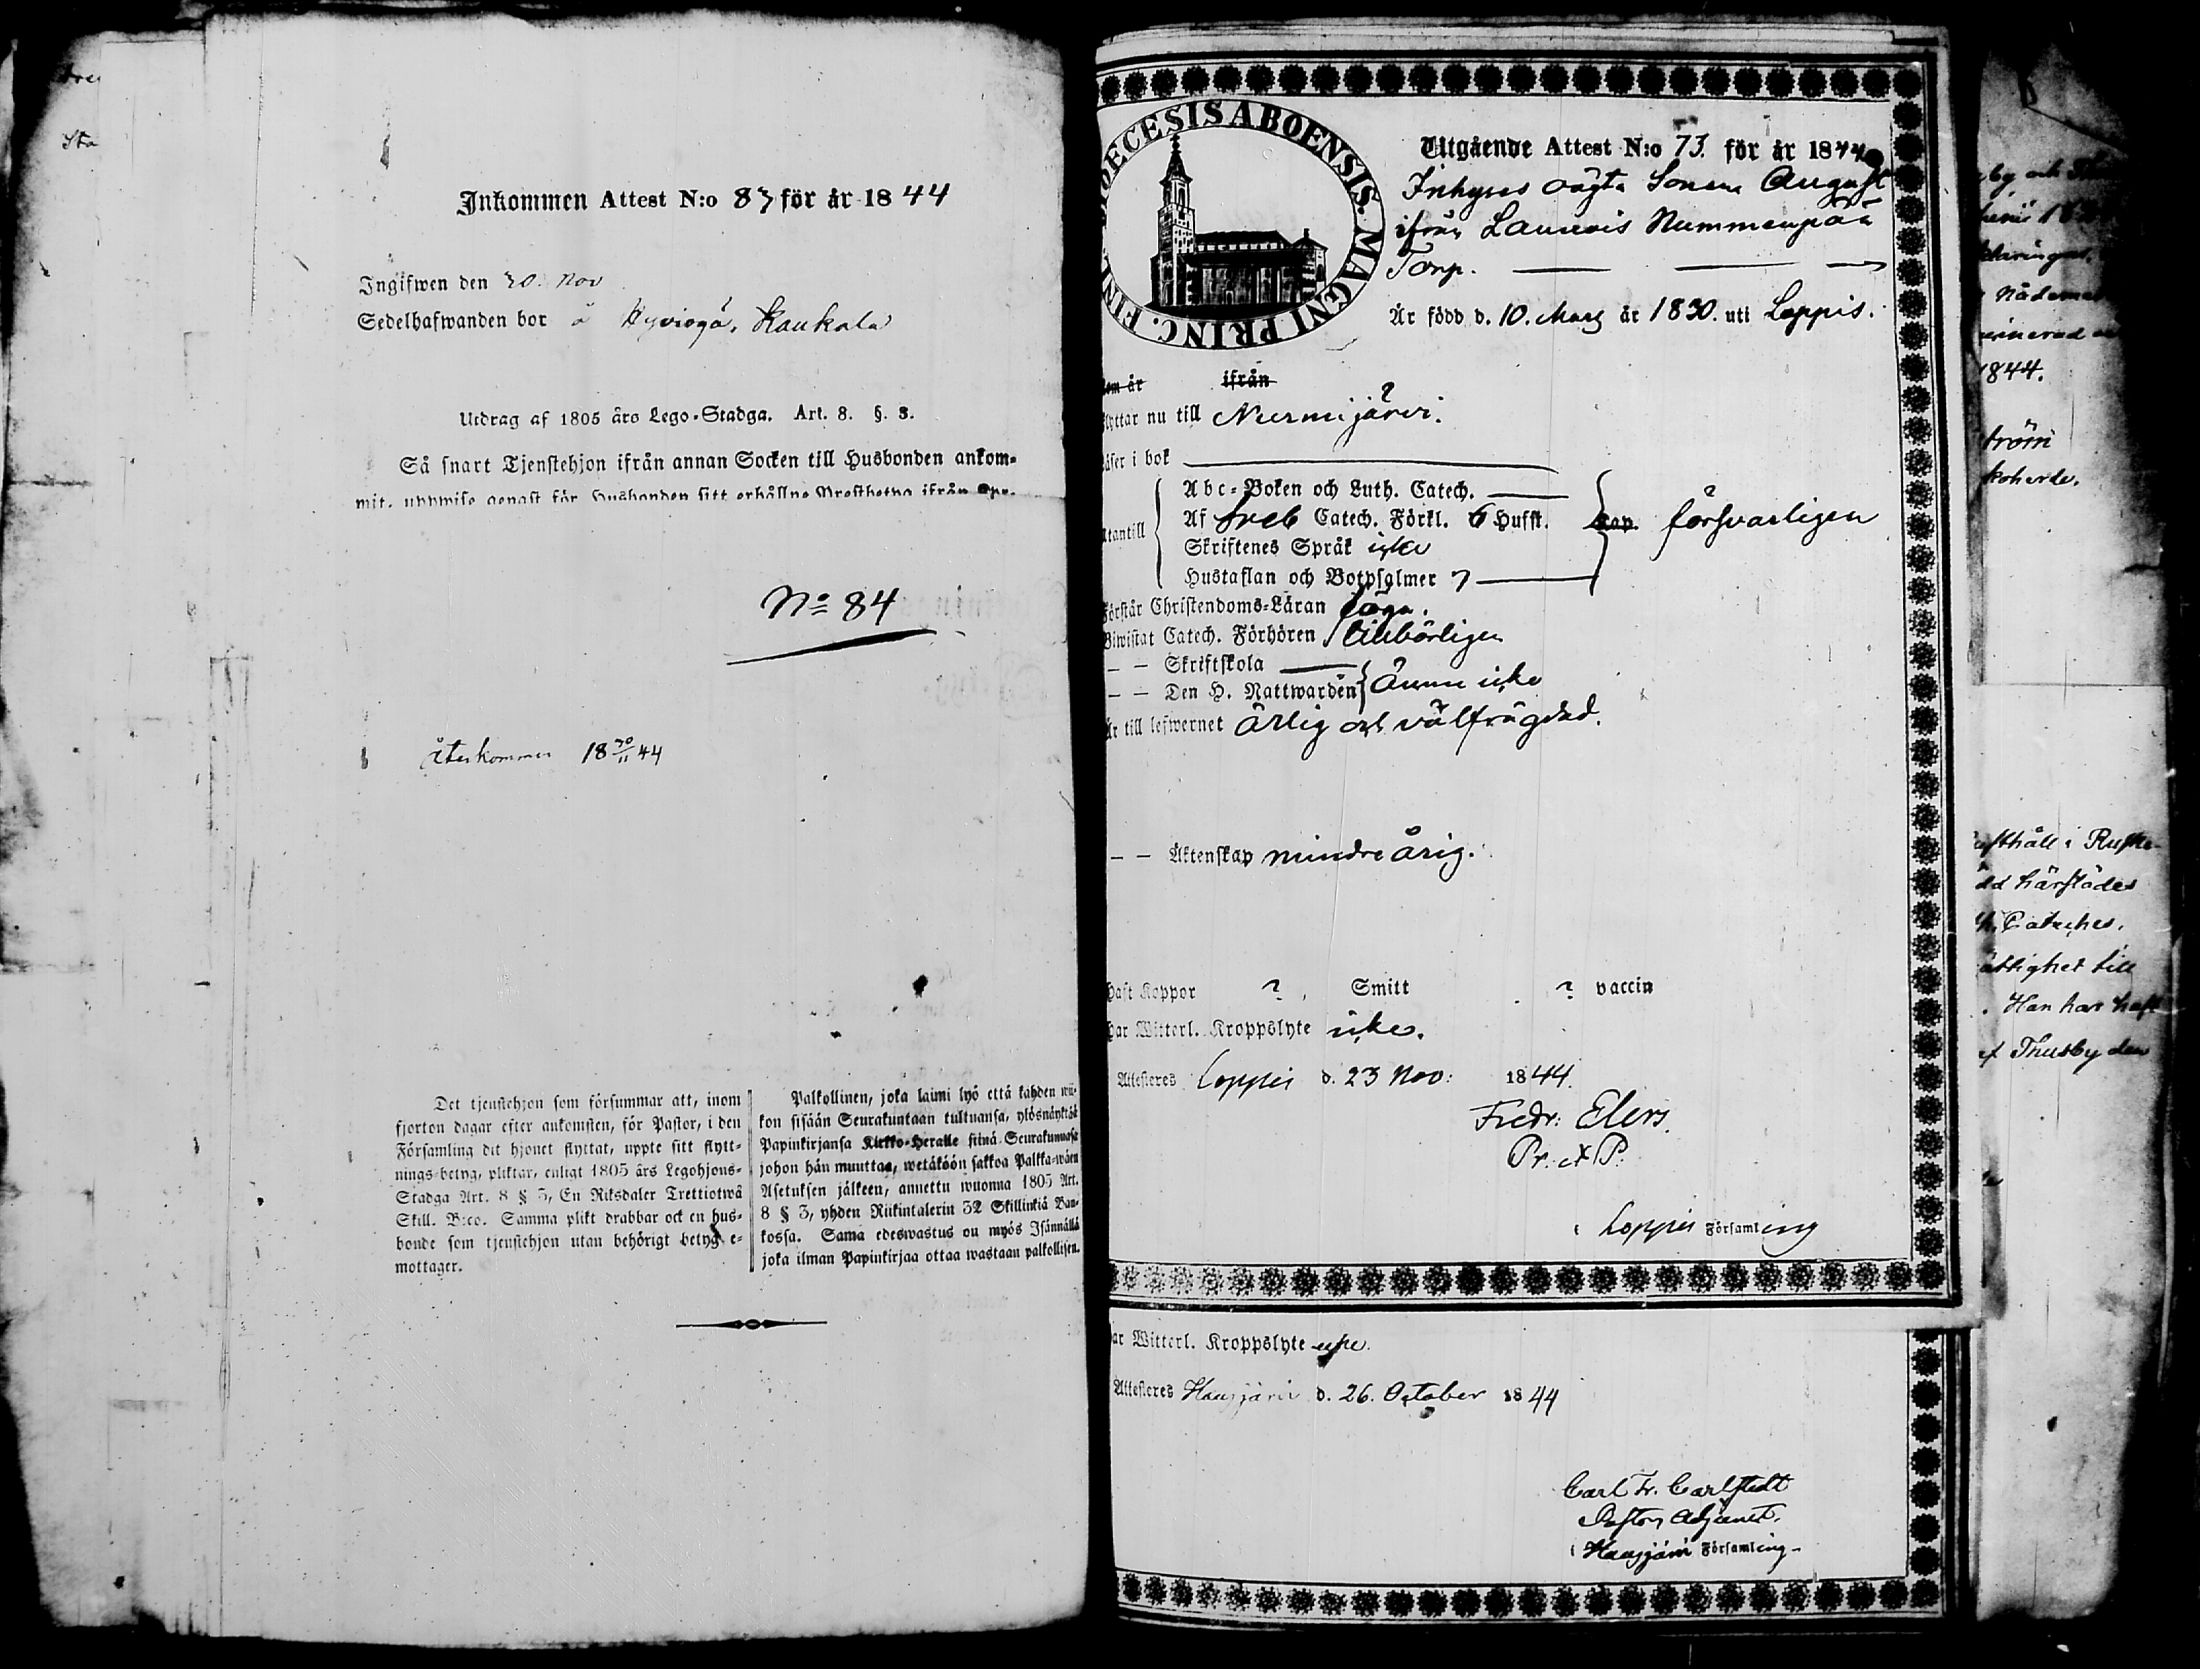 Inkommen Attest N:o 83 för år 1844
Ingifwen den 30. Nov
Sedelhafwanden bor å Hyvingä, Kaukala
Utdrag af 1805 års Lego-Stadga. Art. 8. §. 3.
Så snart Tjenstehjon ifrån annan Socken till Husbonden ankom-
mit, uppwise genast för Husbonden sitt erhållne Prestbetyg ifrån
No 84
Återkommen 18 30/11 44
Det tjenstehjon som försummar att, inom
fjorton dagar efter ankomsten, för Pastor, i den
Församling dit hjonet flyttat, uppte sitt flytt-
nings-betyg, pliktar, enligt 1805 års Legohjons-
Stadga Art. 8 § 3, En Riksdaler Trettiotwå
Skill. B:co. Samma plikt drabbar ock en hus-
bonde som tjenstehjon utan behörigt betyg e-
mottager.
Palkollinen, joka laimi lyö että kahden wii-
kon sisään Seurakuntaan tultuansa, ylösnäyttää
Papinkirjansa Kirkko-Heralle siinä Seurakunnasa
johon hän muuttaa, wetäköön sakkoa Palkka-wäen
Asetuksen jälkeen, annettu wuonna 1805 Art.
8 § 3, yhden Riikintalerin 32 Skillinkiä Ban-
kossa. Sama edeswastus on myös Isännällä
joka ilman Papinkirjaa ottaa wastaan palkollisen.
DIOECESIS ABOENSIS. MAGNI PRINC. FINL.
Utgående Attest N:o 73. för år 1844
Inhyses oägta Sonen August
ifrån Launois Nummenpää
Torp.
Är född d. 10. Mars år 1830. uti Loppis.
som är ifrån
flyttar nu till Nurmijärvi.
läser i bok
Utantill
Abc-Boken och Luth. Catech.
Af Sveb Catech. Förkl. 6 Hufst. kap. försvarligen
Skriftenes Språk icke
Hustaflan och Botpsalmer 7
Förstår Christendoms-Läran föga.
Biwistat Catech. Förhören tillbörligen
— — Skriftskola
— — Den H. Nattwarden Ännu icke
Är till lefwernet ärlig och välfrägdad.
— — Äktenskap minderårig.
Haft Koppor ? Smitt ? vaccin
Har Witterl. Kroppslyte icke.
Attesteres Loppis d. 23 Nov: 1844.
Fredr: Elers.
Pr: et P.
i Loppis Församling
ar Witterl. Kroppslyte icke.
Attesteres Hausjärvi d. 26. October 1844
Carl Fr. Carlstedt
Pastors Adjunct.
i Hausjärvi Församling
1844.
ström
härstädes
Cateches.
till
. Han har haft
Thusby den